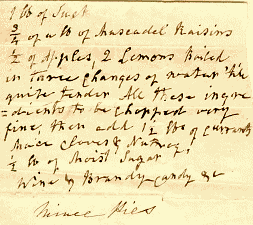 1 lb of Suet
3/4 of a lb of Muscadel Raisins
1/2 of Apples, 2 Lemons boiled
in three changes of water till
quite tender All these ingre
= dients to be chopped very
fine, then add 1 1/2 lbs of currants
Mace Cloves & Nutmeg
1/2 lb of Moist Sugar
Wine & Brandy candy &c
Mince Pies